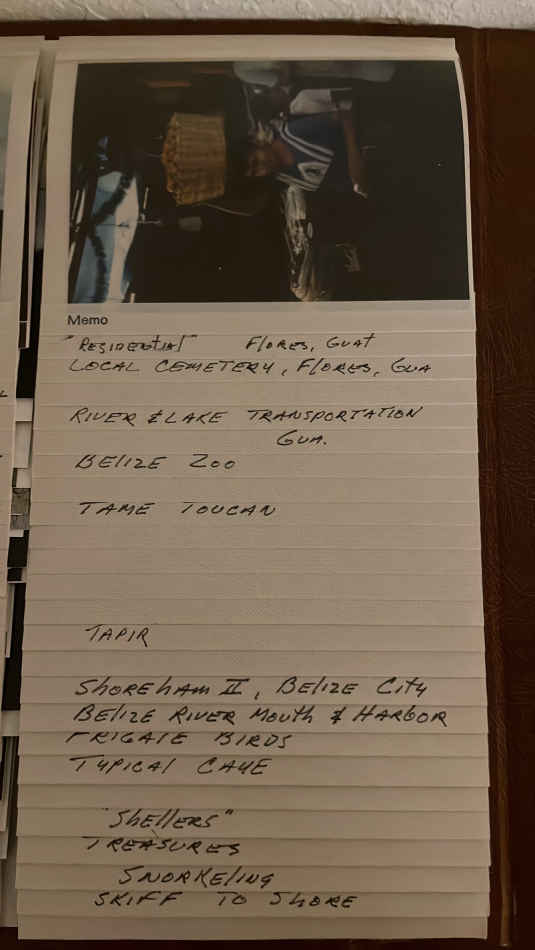 Memo
"RESIDENtiAl" FlORES, GUAt
LOCAL CEMETERY, FlORES, GUA
RIVER & LAKE TRANSPORTATION
GUA.
BElIZE ZOO
TAME TOUCAN
TAPIR
SHOREhAM II, BElIZE City
BElIZE RIVER MOUth & HARBOR
FRIGATE BIRDS
TYPICAL CAYE
"ShEllERS"
TREASURES
SNORKElING
SKIFF TO SHORE